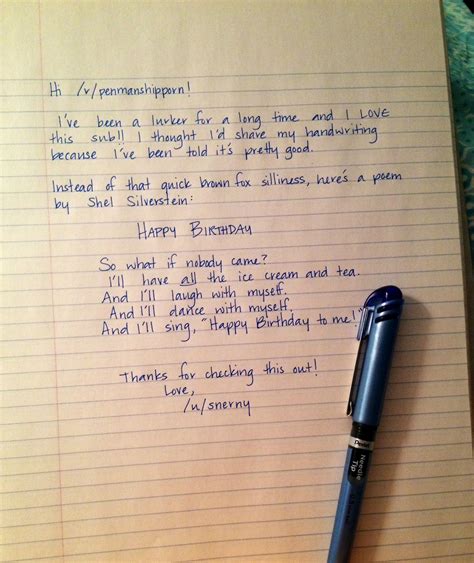 Hi /r/penmanshipporn!
I've been a lurker for a long time and I LOVE
this sub!! I thought I'd share my handwriting
because I've been told it's pretty good.
Instead of that quick brown fox silliness, here's a poem
by Shel Silverstein:
HAPPY BIRTHDAY
So what if nobody came?
I'll have all the ice cream and tea.
And I'll laugh with myself.
And I'll dance with myself.
And I'll sing, "Happy Birthday to me!"
Thanks for checking this out!
Love,
/u/snerny
Pentel
Needle
Tip